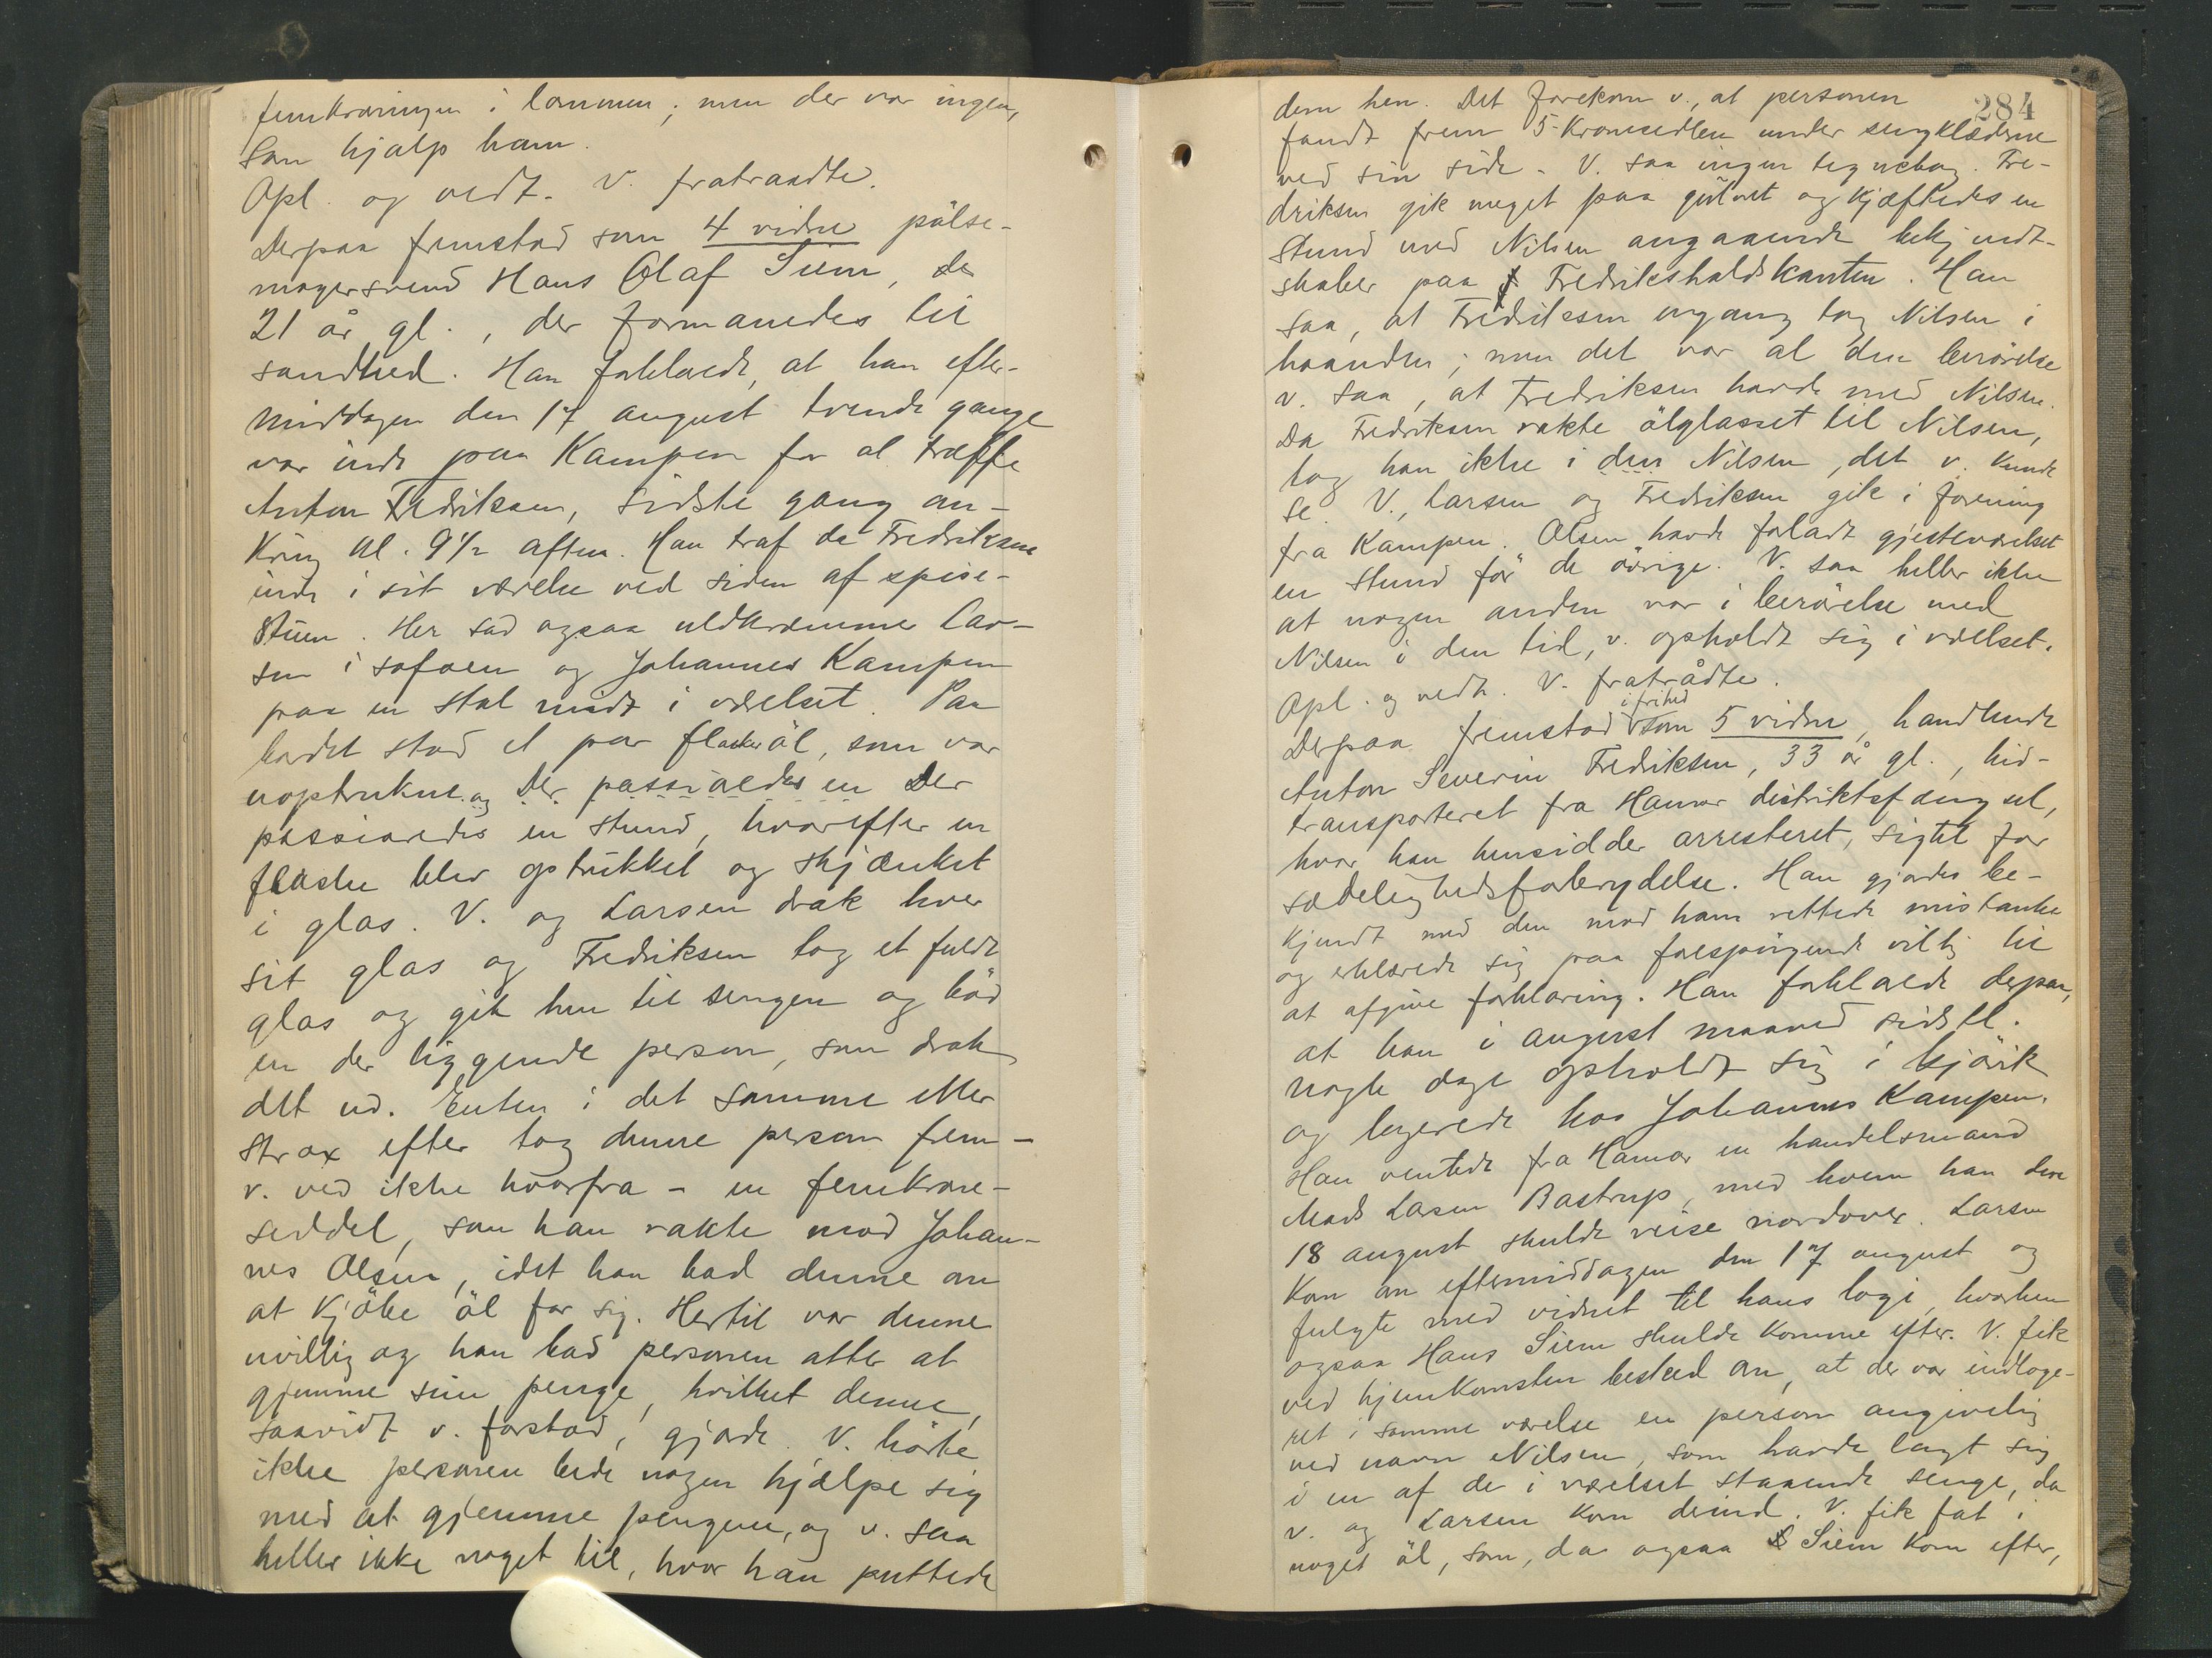 femkroningen i lommen; men der var ingen,
som hjalp ham.
Opl. og vedt. V. fratraadte.
Derpaa fremstod som 4 vidne pölse-
magersvend Hans Olaf Siem,
21 år gl., der formanedes til
sandhed. Han forklarede, at han efter-
middagen den 17 august tvende gange
var inde paa Kampen for at træffe
Anton Fredriksen, sidste gang om-
kring kl. 9½ aften. Han traf da Fredriksen
inde i sit værelse ved siden af spise-
stuen. Her sad ogsaa uldkræmmer Lar-
sen i sofaen og Johannes Kampen
paa en stol midt i værelset. Paa
bordet stod et par flasker öl, som var
uoptrukne. og Der passiaredes en Der
passiaredes en stund, hvorefter en
flaske blev optrukket og skjænket
i glas. V. og Larsen drak hver
sit glas og Fredriksen tog et fuldt
glas og gik hen til sengen og böd
en der liggende person, som drak
det ud. Enten i det samme eller
strax efter tog denne person frem –
v. ved ikke hvorfra – en femkrone-
seddel, som han rakte mod Johan-
nes Olsen, idet han bad denne om
at kjöbe öl for sig. Hertil var denne
uvillig og han bad personen atter at
gjemme sine penge, hvilket denne,
saavidt v. forstod, gjorde. V. hörte
ikke personen bede nogen hjælpe sig
med at gjemme pengene, og v. saa
heller ikke noget til, hvor han puttede
284
dem hen. Det forekom v., at personen
fandt frem 5-Kronesedlen under sengklæderne
ved sin side. V. saa ingen tegnebog. Fre-
driksen gik meget paa gulvet og kjæftedes en
stund med Nilsen angaaende bekjendt-
skaber paa Fredrikshaldskanten. Han
saa, at Fredriksen engang tog Nilsen i
haanden; men det var al den berörelse
v. saa, at Fredriksen havde med Nilsen.
Da Fredriksen rakte ölglasset til Nilsen,
tog han ikke i den Nilsen, det v. kunde
se. V., Larsen og Fredriksen gik i forening
fra Kampen. Olsen havde forladt gjesteværelset
en stund för de övrige. V. saa heller ikke
at nogen anden var i berörelse med
Nilsen i den tid, v. opholdt sig i værelset.
Opl. og vedt. V. fratrådte.
Derpaa fremstod i frihed som 5 vidne, handlende
Anton Severin Fredriksen, 33 år gl., hid-
transporteret fra Hamar distriktsfængsel,
hvor han hensidder arresteret, sigtet for
sædelighedsforbrydelse. Han gjordes be-
kjendt med den mod ham rettede mistanke
og erklærede sig paa forespörgende villig til
at afgive forklaring. Han forklarede derpaa,
at han i august maaned sidstl.
nogle dage opholdt sig i Gjövik
og logerede hos Johannes Kampen.
Han ventede fra Hamar en handelsmand
Mads Larsen Bastrup, med hvem han den
18 august skulde reise nordover. Larsen
kom om eftermiddagen den 17 august og
fulgte med vidnet til hans logi, hvorhen
ogsaa Hans Siem skulde komme efter. V. fik
ved hjemkomsten besked om, at der var indloge-
ret i samme værelse en person angivelig
ved navn Nilsen, som havde lagt sig
i en af de i værelset staaende senge, da
v. og Larsen kom derind. V. fik fat i
noget öl, som, da ogsaa Siem kom efter,